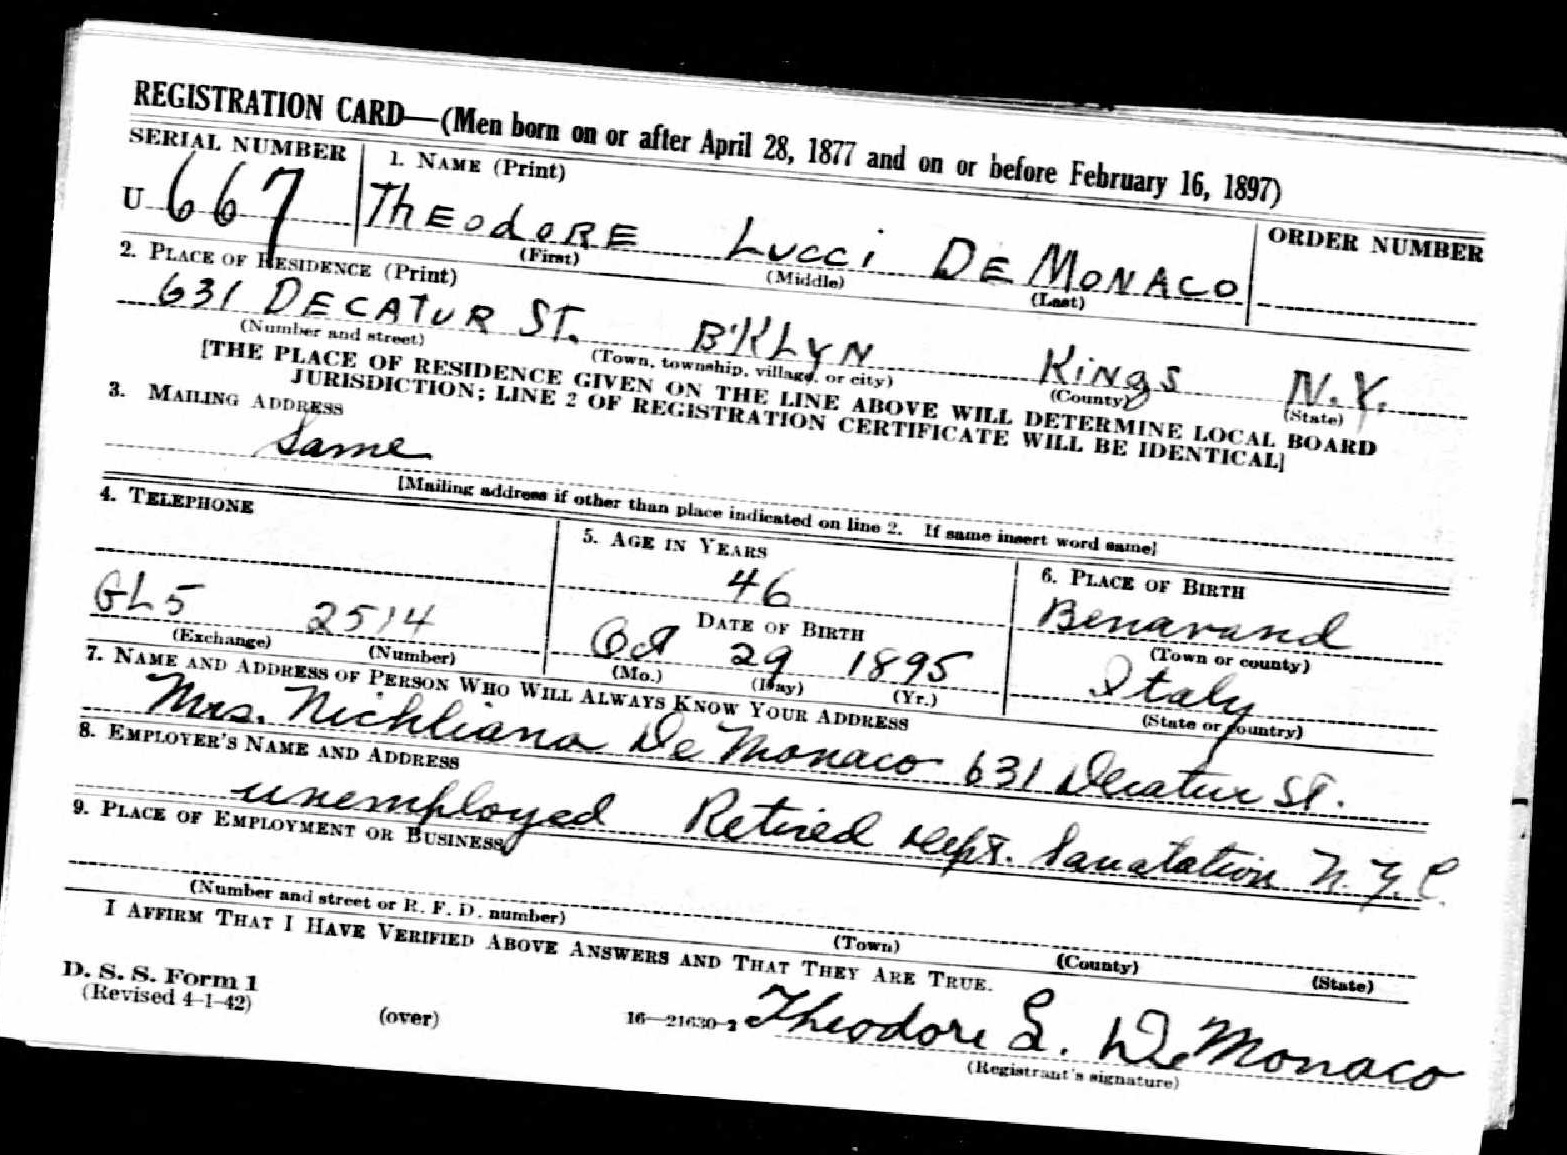 REGISTRATION CARD—(Men born on or after April 28, 1877 and on or before February 16, 1897)
SERIAL NUMBER
1. NAME (Print)
ORDER NUMBER
U 667
THEODORE LUCCI DE MONACO
(First) (Middle) (Last)
2. PLACE OF RESIDENCE (Print)
631 DECATUR ST. B'KLYN KINGS N.Y.
(Number and street) (Town, township, village, or city) (County) (State)
[THE PLACE OF RESIDENCE GIVEN ON THE LINE ABOVE WILL DETERMINE LOCAL BOARD
JURISDICTION; LINE 2 OF REGISTRATION CERTIFICATE WILL BE IDENTICAL]
3. MAILING ADDRESS
Same
[Mailing address if other than place indicated on line 2. If same insert word same]
4. TELEPHONE
5. AGE IN YEARS
6. PLACE OF BIRTH
46
Benavand
GL5 2514
DATE OF BIRTH
(Town or county)
(Exchange) (Number)
Oct 29 1895
(Mo.) (Day) (Yr.)
Italy
(State or country)
7. NAME AND ADDRESS OF PERSON WHO WILL ALWAYS KNOW YOUR ADDRESS
Mrs. Nichliana De Monaco 631 Decatur St.
8. EMPLOYER'S NAME AND ADDRESS
unemployed Retired Dept. Sanatation N.Y.C.
9. PLACE OF EMPLOYMENT OR BUSINESS
(Number and street or R. F. D. number) (Town) (County) (State)
I AFFIRM THAT I HAVE VERIFIED ABOVE ANSWERS AND THAT THEY ARE TRUE.
D. S. S. Form 1
(Revised 4-1-42) (over) 16—21630-2
Theodore L. De Monaco
(Registrant's signature)